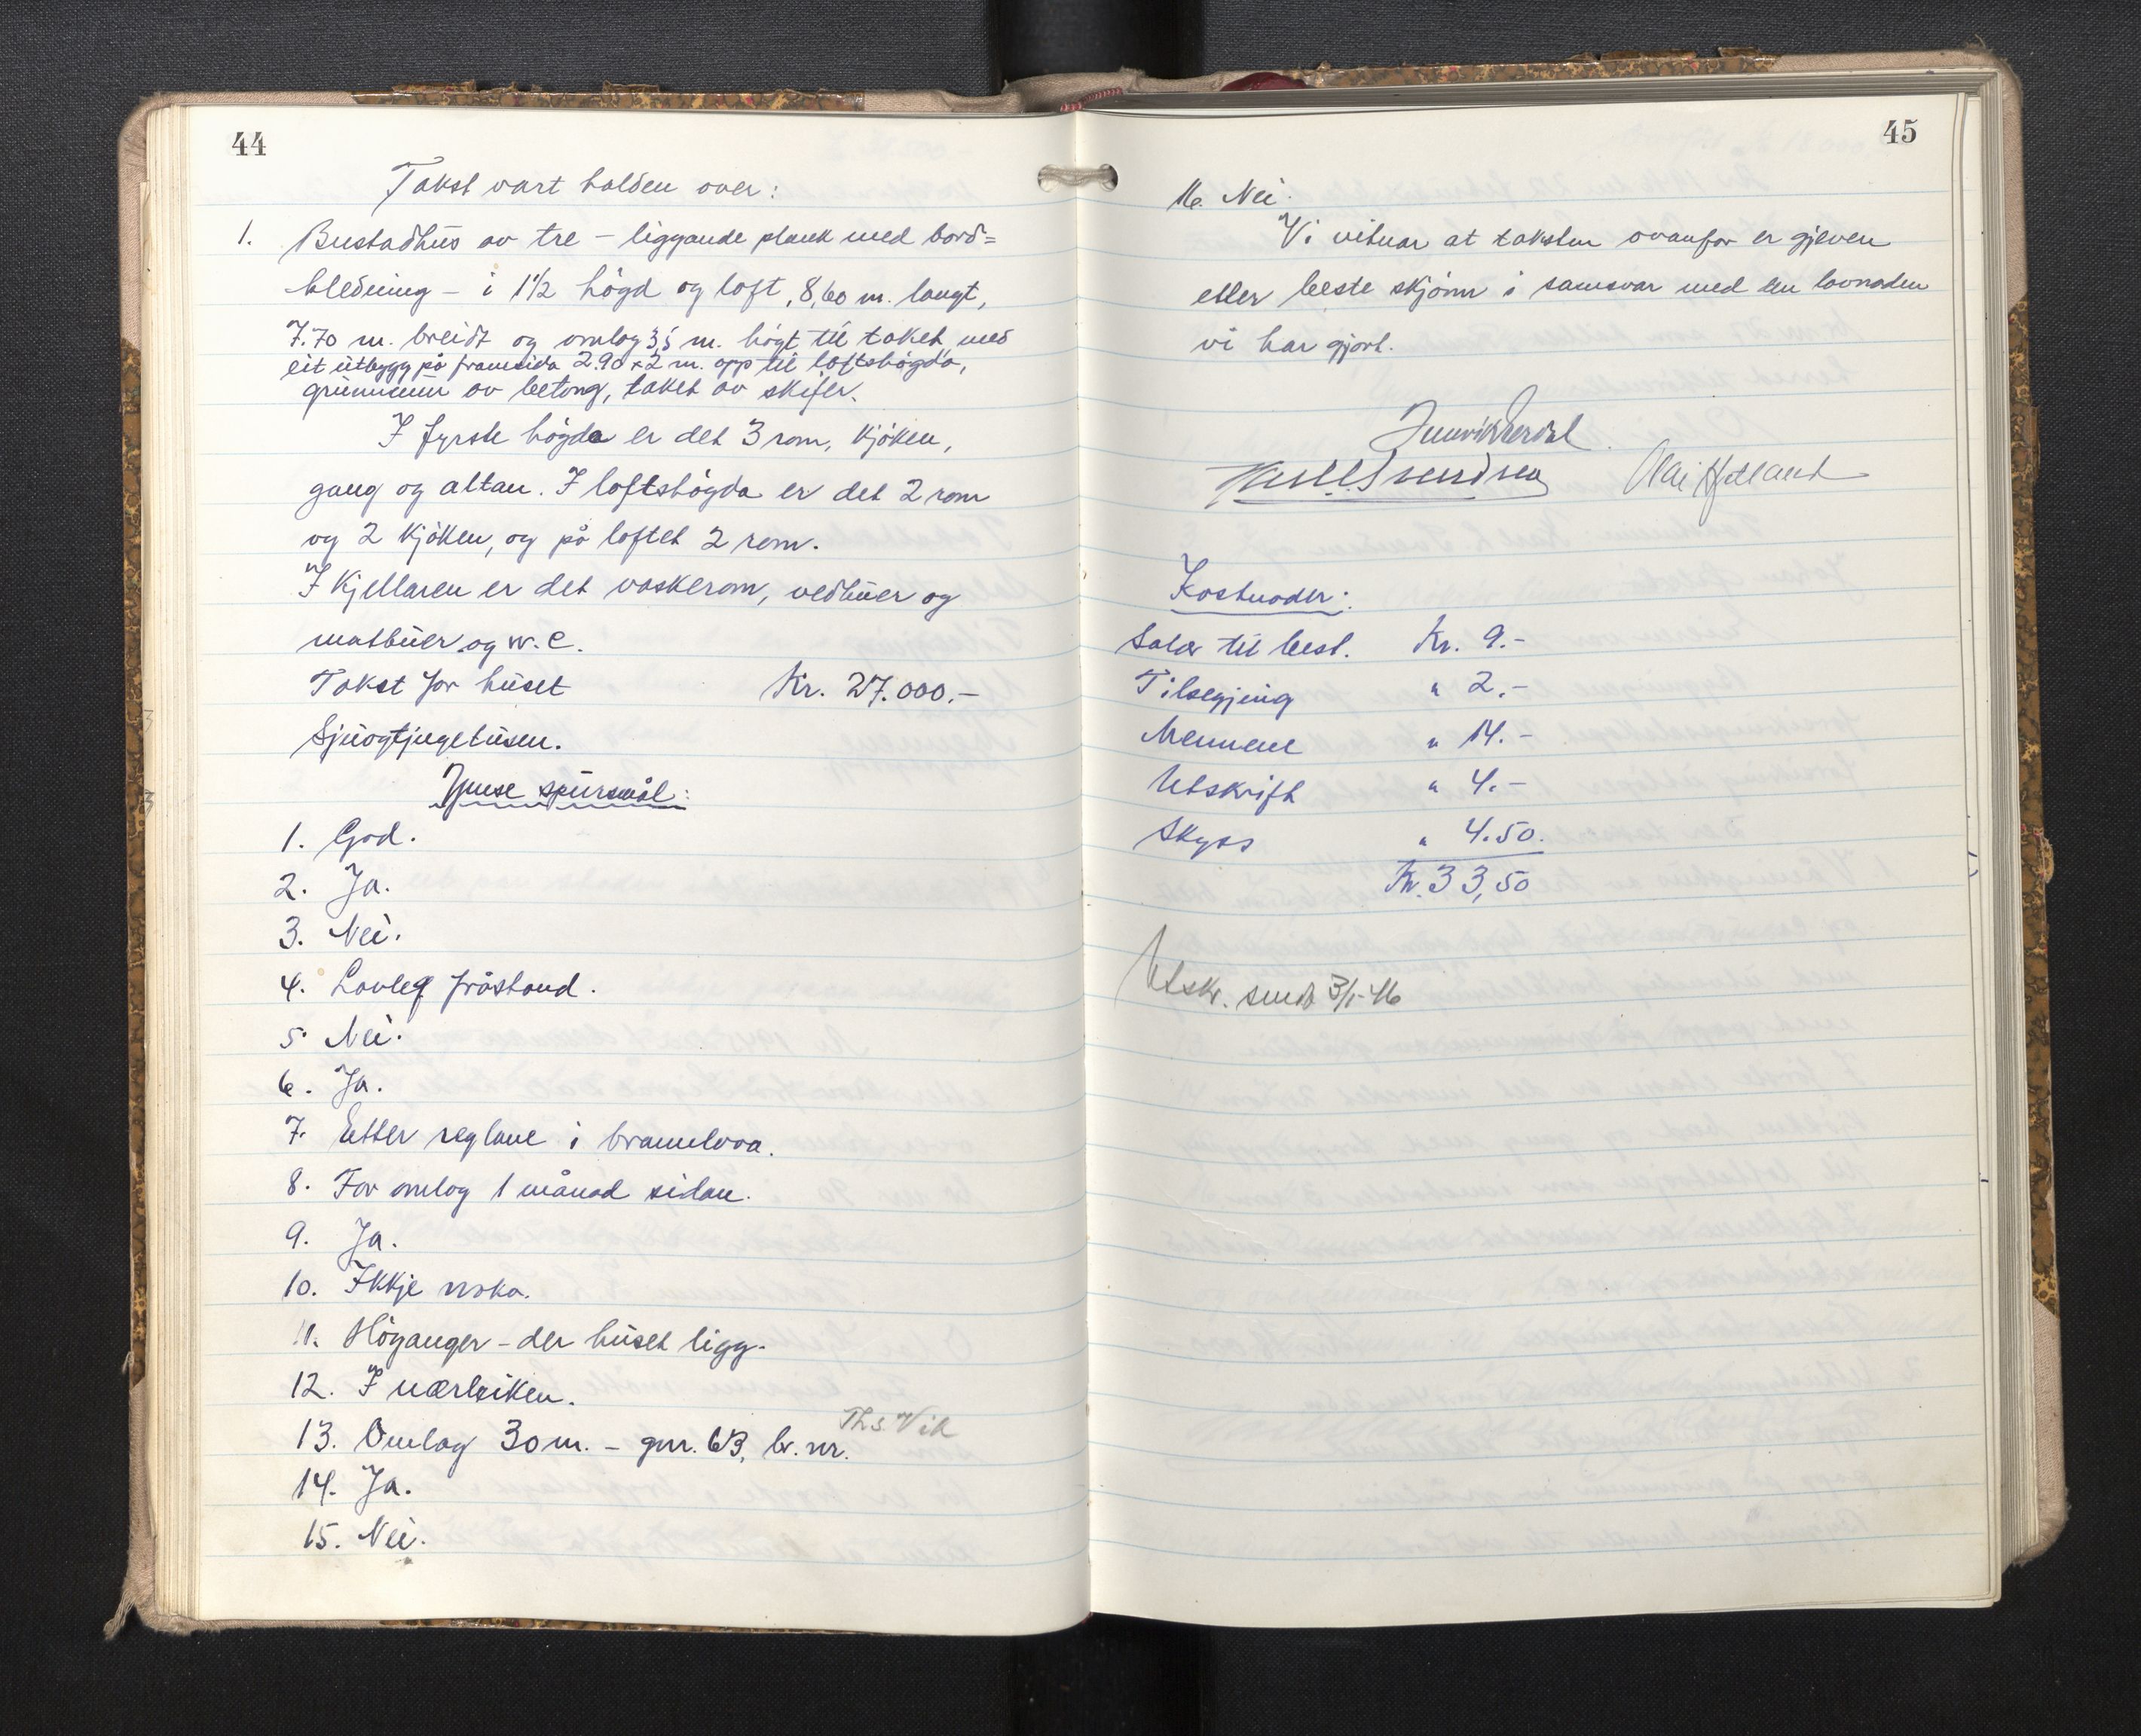 44
Takst vart halden over:
1. Bustadhus av tre – liggande plank med bord=
kledning – i 1½ högd og loft, 8,60 m. langt,
7.70 m. breidt og omlag 3,5 m. högt til taket, med
eit utbygg på framsida 2.90 x 2 m. opp til loftshögda,
grunnmur av betong, taket av skifer.
I fyrste högda er det 3 rom, kjöken,
gang og altan. I loftshögda er det 2 rom
og 2 kjöken, og på loftet 2 rom.
I kjellaren er det vaskerom, vedbuer og
matbuer og w.c.
Takst for huset Kr. 27.000.–
Sjuogtjugetusen.
Ymse spursmål:
1. God.
2. Ja.
3. Nei.
4. Lovleg fråstand.
5. Nei.
6. Ja.
7. Etter reglane i brannlova.
8. For omlag 1 månad sidan.
9. Ja.
10. Ikkje noko.
11. Höyanger – der huset ligg.
12. I nærleiken.
Ths. Vik
13. Omlag 30 m. – gnr. 63, br. nr.
14. Ja.
15. Nei.
45
16. Nei.
Vi vitnar at taksten ovanfor er gjeven
etter beste skjönn i samsvar med den lovnaden
vi har gjort.
Svendsen Olai Hetland
Kostnader:
Salær til best. Kr. 9.–
Tilsegjing " 2.–
Mennene " 14.–
Utskrift " 4.–
Skyss " 4.50.
Kr. 33,50
Utskr. sendt 3/1-46